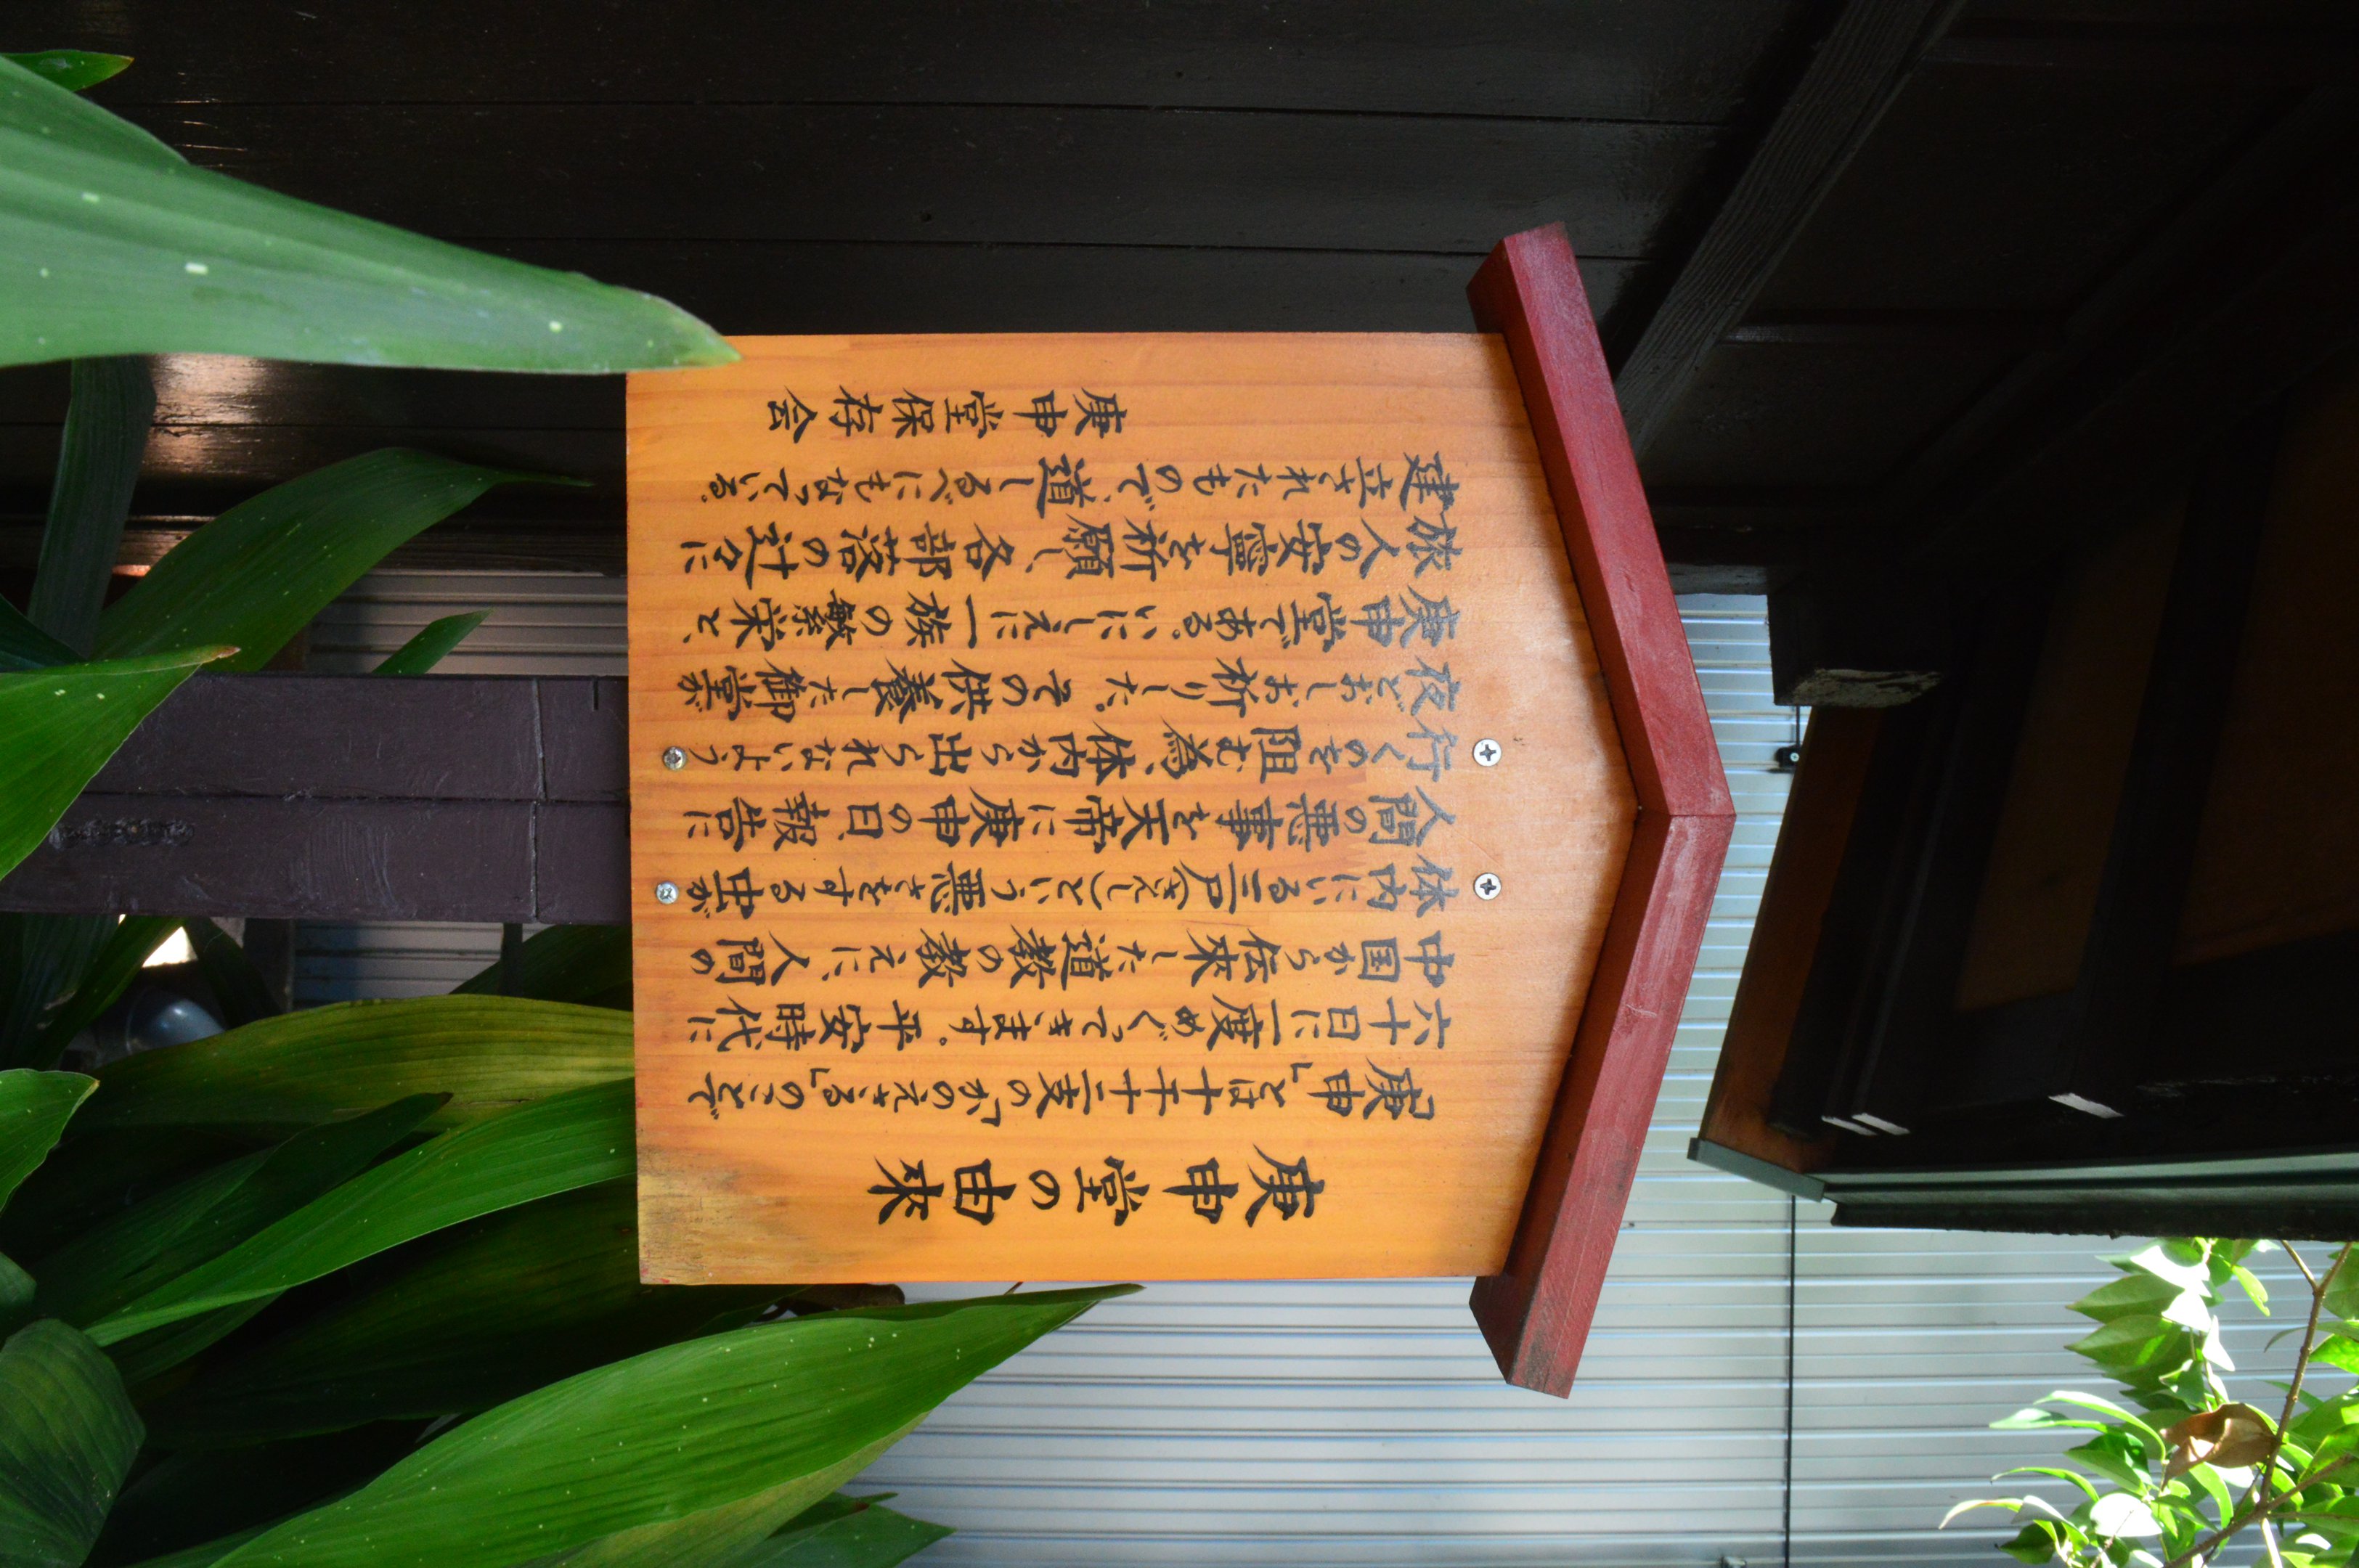 庚申堂の由来
「庚申」とは十干十二支の「かのえさる」のことで
六十日に一度めぐってきます。平安時代に
中国から伝来した道教の教えに、人間の
体内にいる三尸(さんし)という悪さをする虫が
人間の悪事を天帝に庚申の日、報告に
行くのを阻む為、体内から出られないよう
夜どおしお祈りした。その供養した御堂が
庚申堂である。いにしえに一族の繁栄と、
旅人の安寧を祈願し、各部落の辻々に
建立されたもので、道しるべにもなっている。
庚申堂保存会